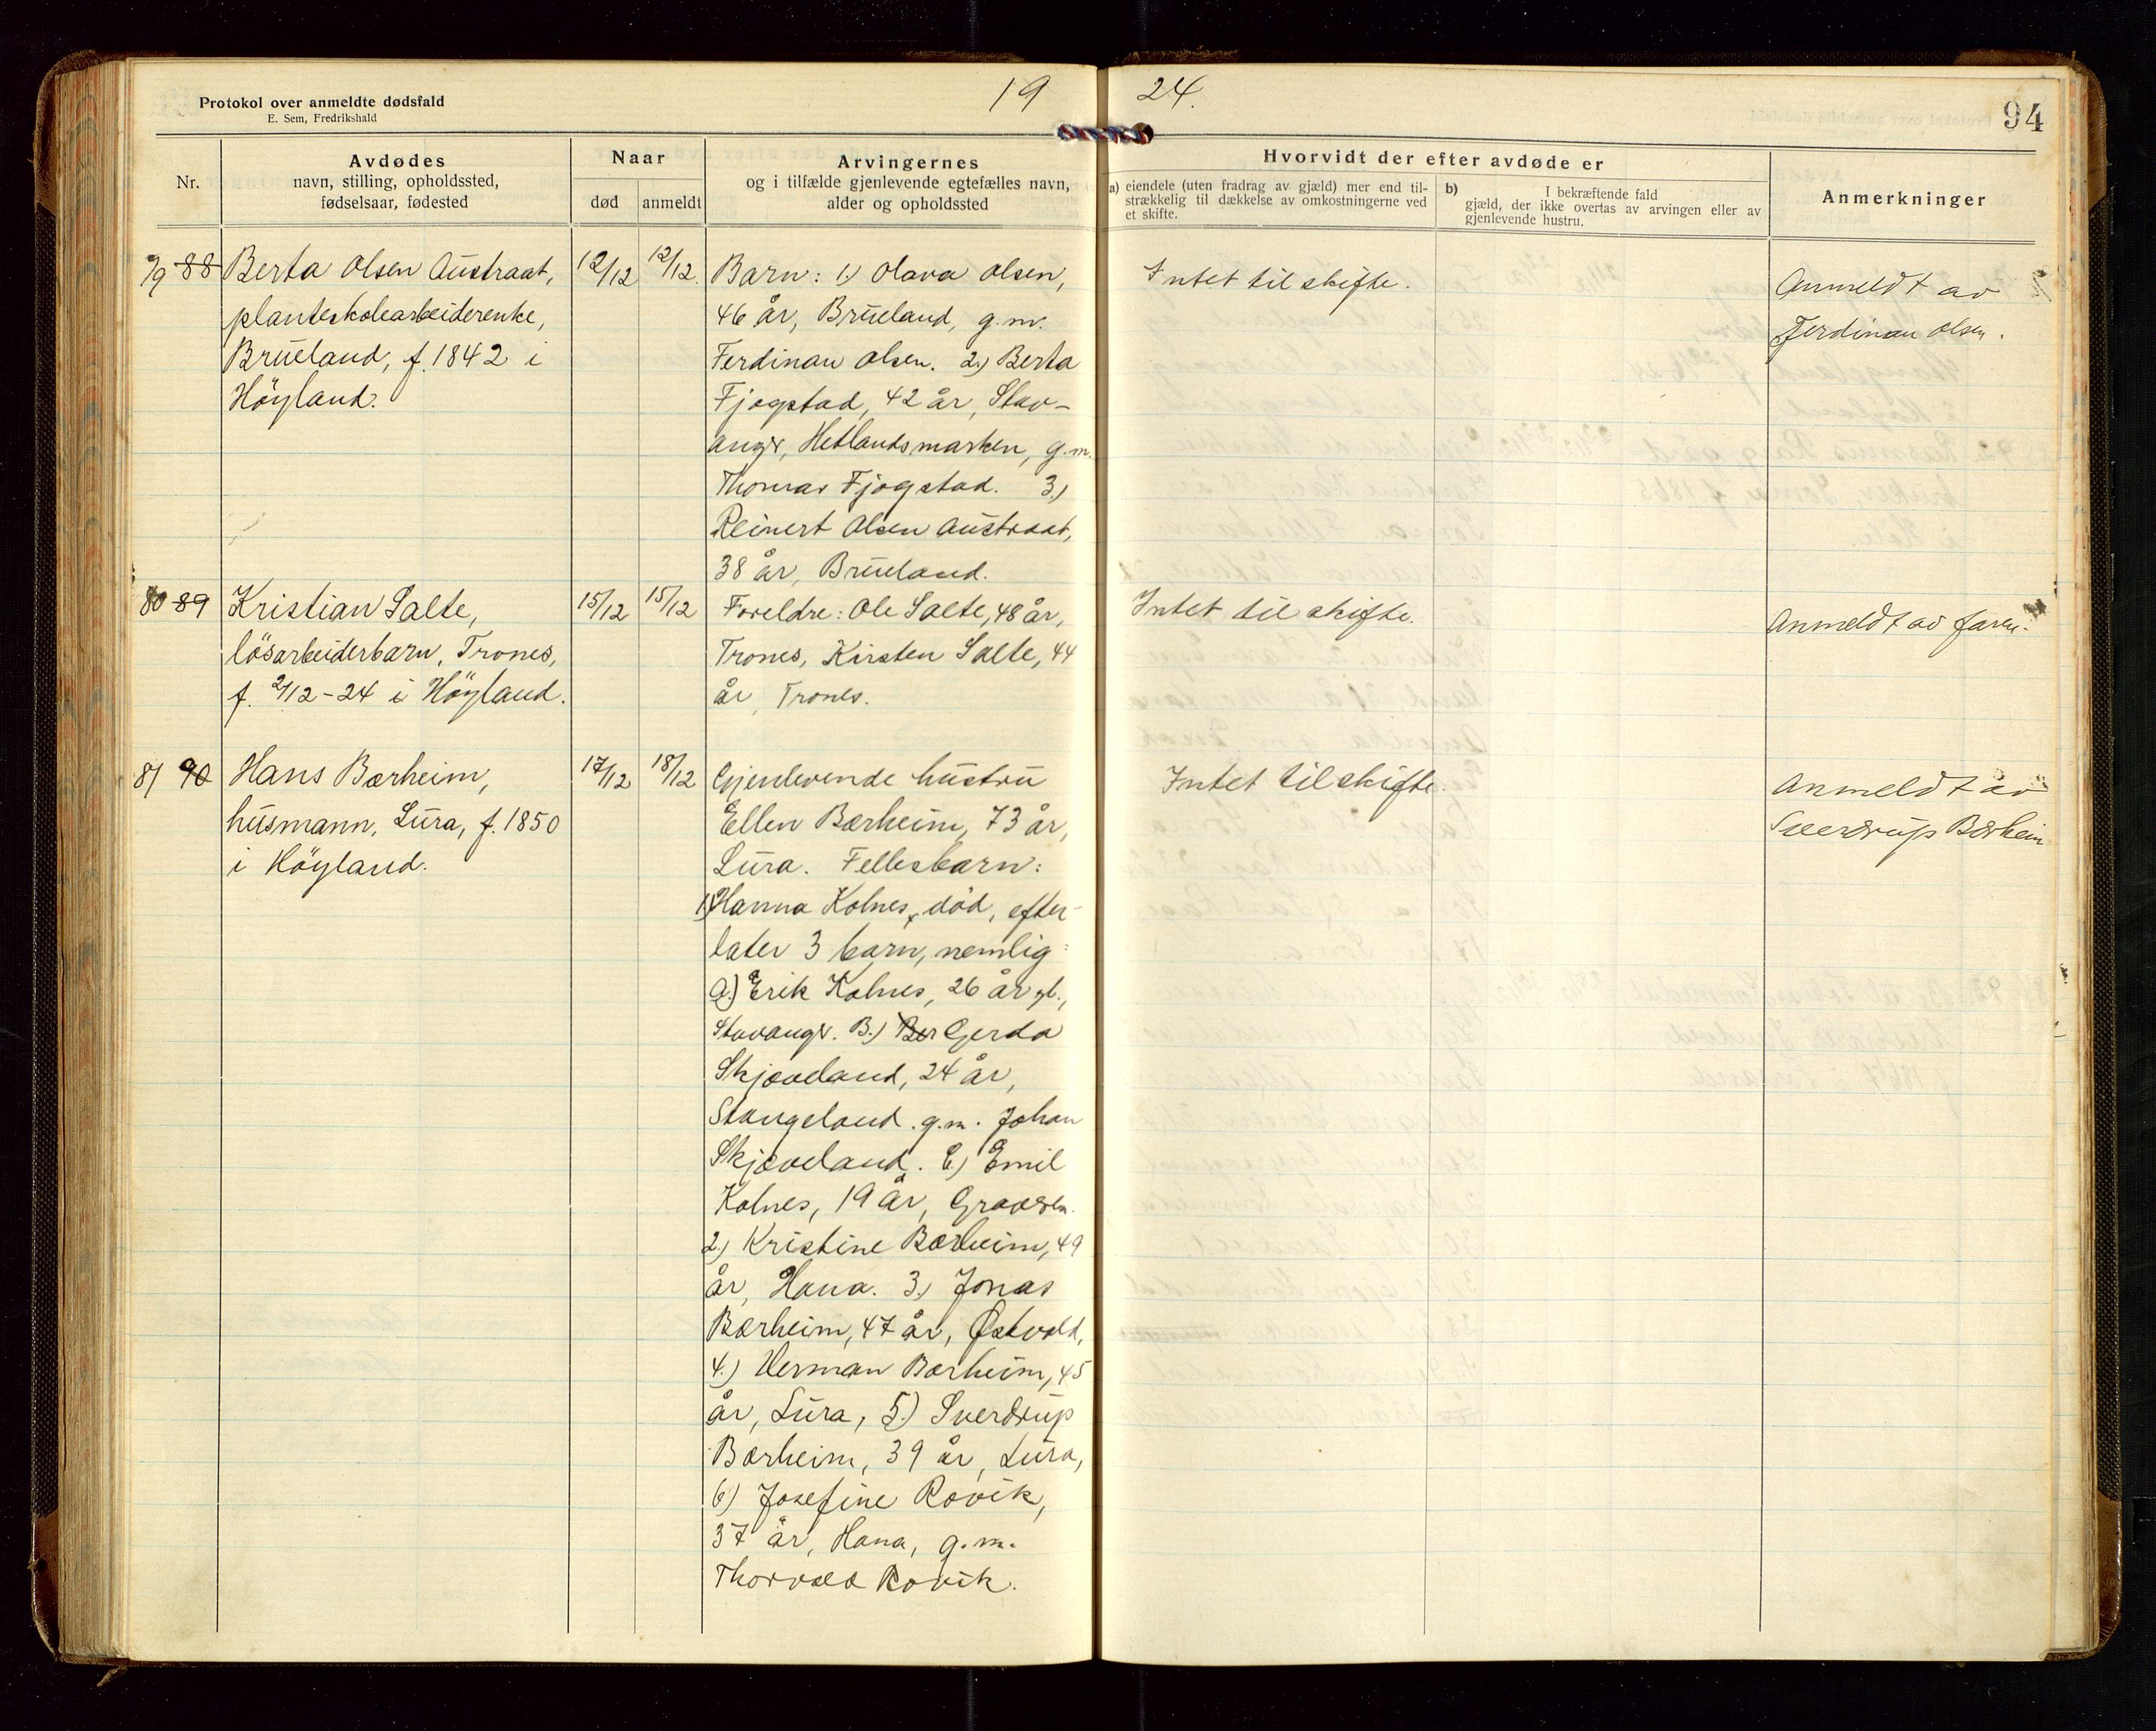 Protokol over anmeldte dødsfald
E. Sem, Fredrikshald
19 24.
94
Nr.
Avdødes
navn, stilling, opholdssted,
fødselsaar, fødested
Naar
død
anmeldt
Arvingernes
og i tilfælde gjenlevende egtefælles navn,
alder og opholdssted
Hvorvidt der efter avdøde er
a) eiendele (uten fradrag av gjæld) mer end til-
strækkelig til dækkelse av omkostningerne ved
et skifte.
b) I bekræftende fald
gjæld, der ikke overtas av arvingen eller av
gjenlevende hustru.
Anmerkninger
79 88
Berta Olsen Austraat,
planteskolearbeiderenke,
Brueland, f. 1842 i
Höyland.
12/12
12/12.
Barn: 1.) Olava Olsen,
46 år, Brueland, g.m.
Ferdinan Olsen. 2.) Berta
Fjogstad, 42 år, Stav-
anger, Hetlandsmarken, g.m.
Thomas Fjogstad. 3.)
Reinert Olsen Austraat,
38 år, Brueland.
Intet til skifte.
Anmeldt av
Ferdinan Olsen.
80 89
Kristian Salte,
lösarbeiderbarn, Trones,
f. 2/12-24 i Höyland.
15/12
15/12
Foreldre: Ole Salte, 48 år,
Trones, Kirsten Salte, 44
år, Trones.
Intet til skifte.
Anmeldt av faren.
81 90
Hans Bærheim,
husmann, Lura, f. 1850
i Höyland.
17/12
18/12
Gjenlevende hustru
Ellen Bærheim, 73 år,
Lura. Fellesbarn:
1.) Hanna Kolnes, död, efter-
later 3 barn, nemlig:
a.) Erik Kolnes, 26 år gl.,
Stavanger. B.) Ber Gerda
Skjæveland, 24 år,
Stangeland. g.m. Johan
Skjæveland. C.) Emil
Kolnes, 19 år, Graveren.
2.) Kristine Bærheim, 49
år, Hana. 3.) Jonas
Bærheim, 47 år, Østvold,
4.) Herman Bærheim, 45
år, Lura, 5.) Sverdrup
Bærheim, 39 år, Lura,
6.) Josefine Rovik,
37 år, Hana, g.m.
Thorvald Rovik.
Intet til skifte.
Anmeldt av
Sverdrup Bærheim